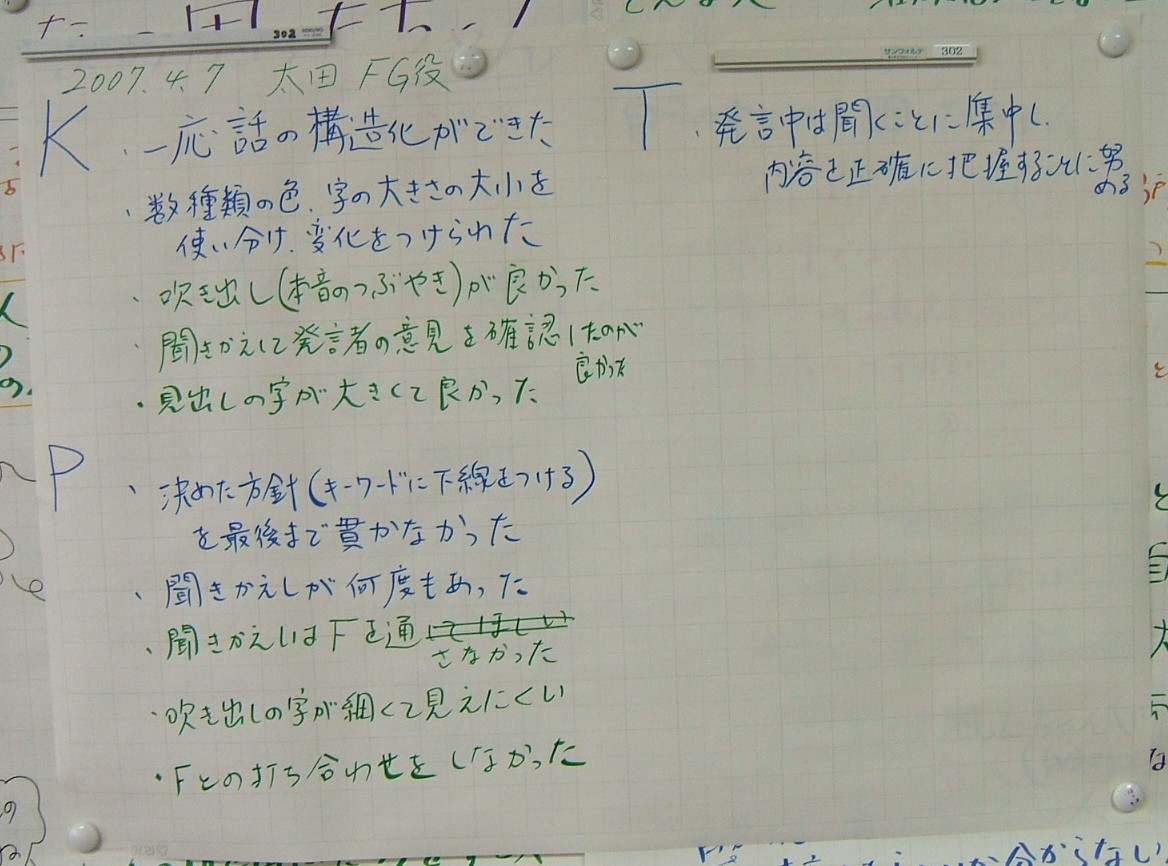 302
サンフォルテ 302
2007.4.7 太田 FG役
K
・一応話の構造化ができた
・数種類の色、字の大きさの大小を
使い分け、変化をつけられた
・吹き出し(本音のつぶやき)が良かった
・聞きかえして発言者の意見を確認したのが
良かった
・見出しの字が大きくて良かった
P
・決めた方針(キーワードに下線をつける)
を最後まで貫かなかった
・聞きかえしが何度もあった
・聞きかえしはFを通してほしい
さなかった
・吹き出しの字が細くて見えにくい
・Fとの打ち合わせをしなかった
T
・発言中は聞くことに集中し、
内容を正確に把握することに努
める
分からない